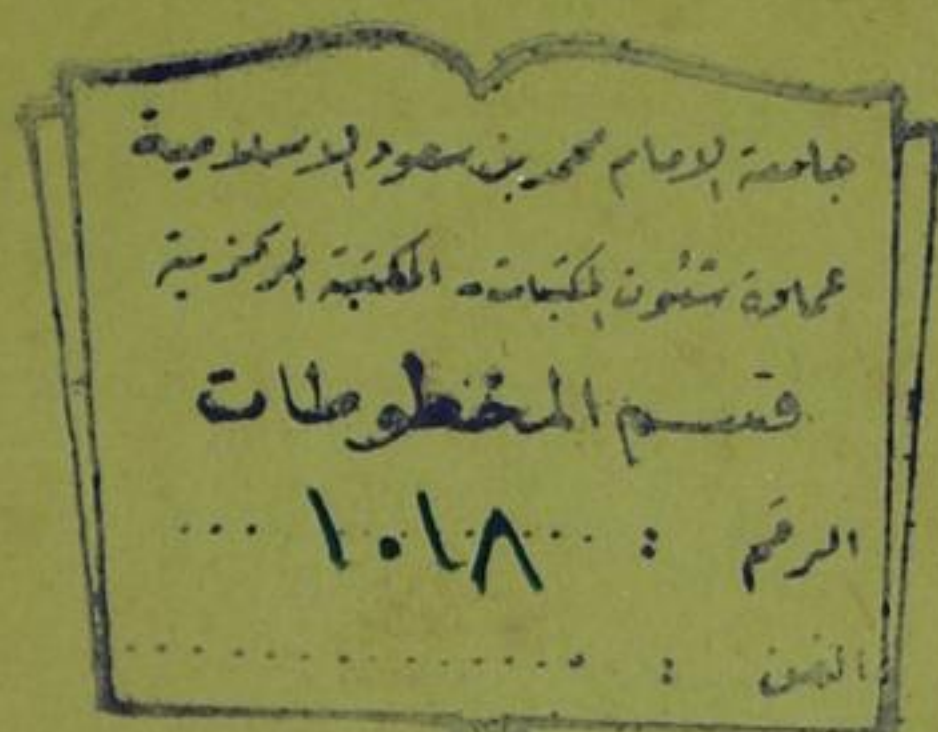 جامعة الإمام محمد بن سعود الإسلامية
عمادة شئون المكتبات - المكتبة المركزية
قسم المخطوطات
الرقم : ... ١٠١٨ ...
الفن : ..............